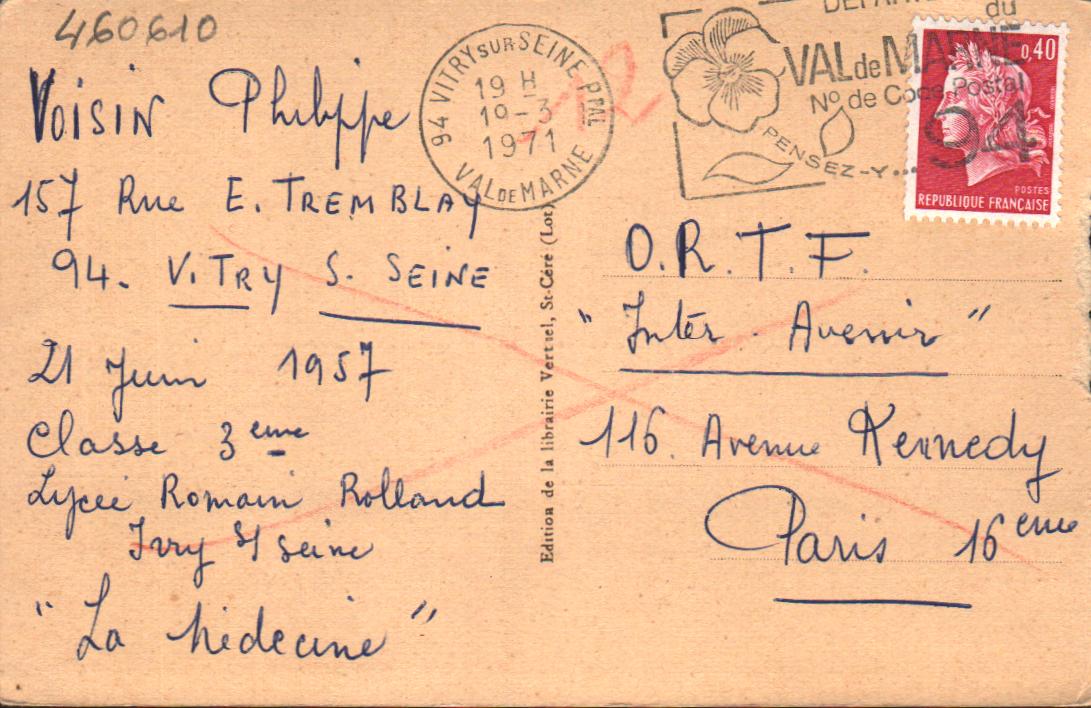 460610
VOISIN Philippe
157 Rue E. TREMBLAY
94. VITRY S. SEINE
21 Juin 1957
Classe 3eme
Lycée Romain Rolland
Ivry S/ Seine
"La Médecine"
94 VITRY SUR SEINE PPAL
19 H
19-3
1971
VAL DE MARNE
du
VAL de MARNE
No de Code Postal
94
PENSEZ-Y...
0,40
POSTES
REPUBLIQUE FRANÇAISE
Edition de la librairie Vertuel, St-Céré (Lot)
O.R.T.F.
"Inter. Avenir"
116 Avenue Kennedy
Paris 16eme